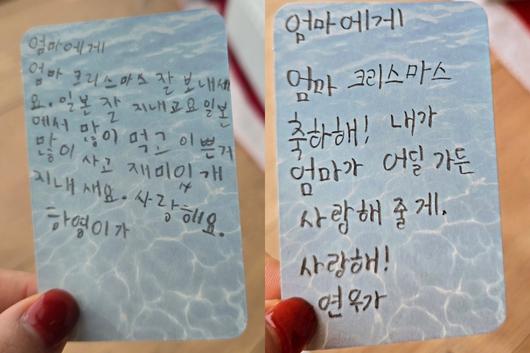 엄마에게
엄마 크리스마스 잘 보내세
요. 일본 잘 지내고요 일본
에서 많이 먹고 이쁜거
많이 사고 재미있개
지내 새요. 사랑해요.
하영이가
엄마에게
엄마 크리스마스
축하해! 내가
엄마가 어딜 가든
사랑해 줄게.
사랑해!
연우가